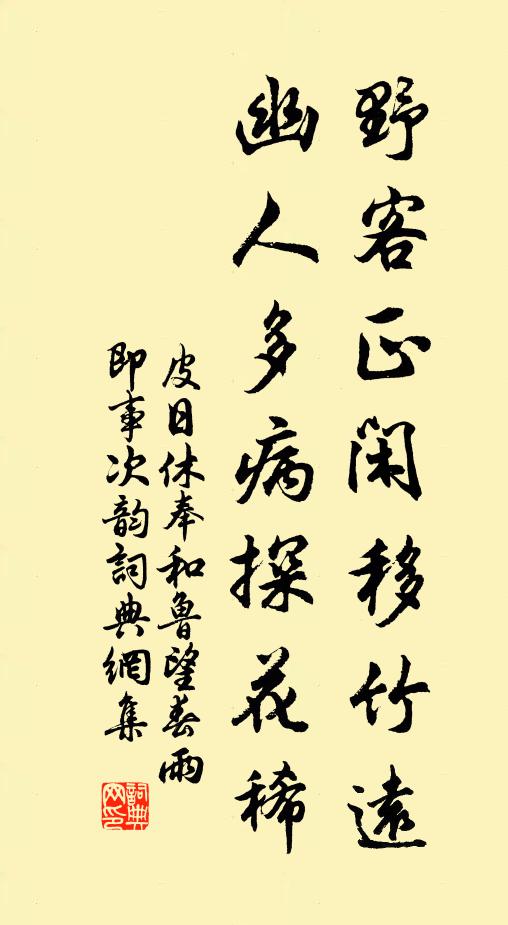 野客正閑移竹遠
幽人多病探花稀
皮日休奉和魯望春雨
即事次韵詞典網集
詞典网印